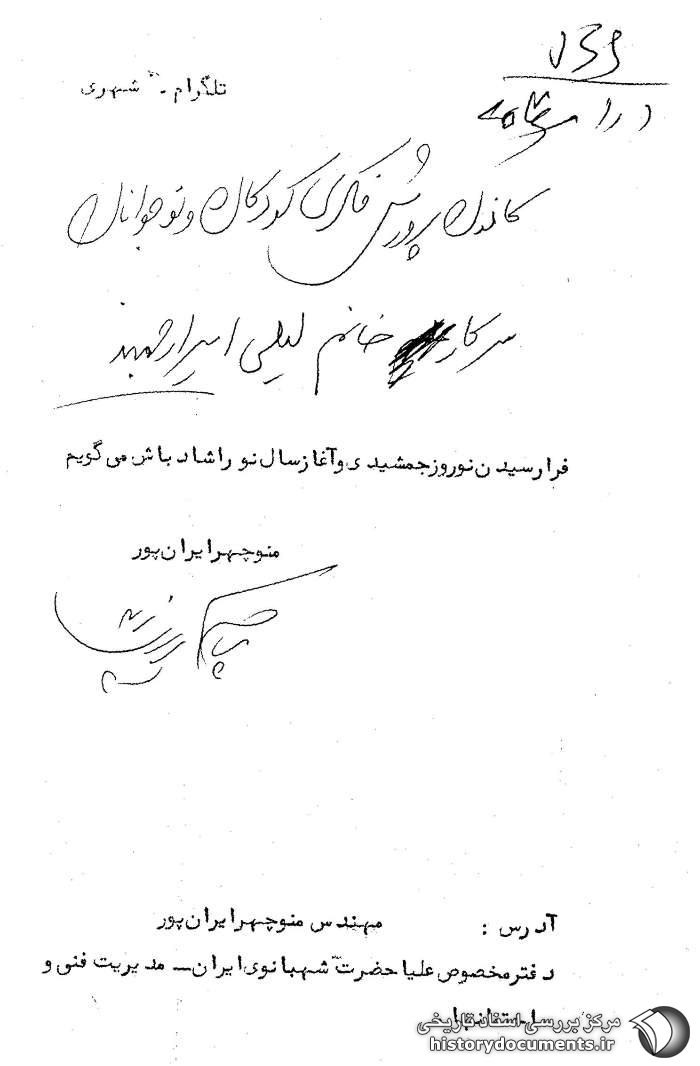 تلگرام - شهری
کانون پرورش فکری کودکان و نوجوانان
سرکار خانم لیلی امیرارجمند
فرا رسیدن نوروز جمشیدی و آغاز سال نو را شاد باش می گویم
منوچهر ایران پور
آدرس : مهندس منوچهر ایران پور
دفتر مخصوص علیا حضرت شهبانوی ایران — مدیریت فنی و
مرکز بررسی اسناد تاریخی
historydocuments.ir